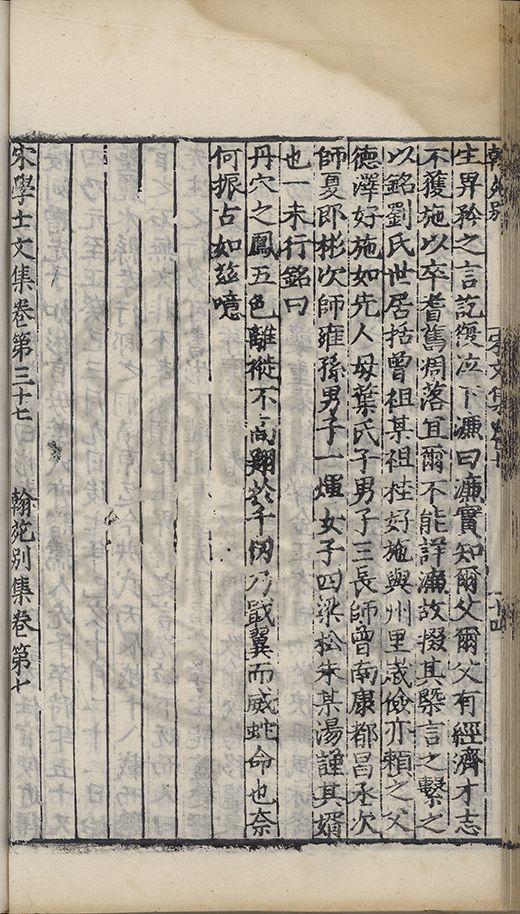 生畀矜之言訖復泣下濂曰濂實知爾父爾父有經濟才志
不獲施以卒耆舊凋落且爾不能詳濂故掇其槩言之繫之
以銘劉氏世居括曾祖某祖桂好施與州里歲儉亦賴之父
德澤好施如先人母葉氏子男子三長師曾南康都昌丞次
師夏郎彬次師雍孫男子一煇女子四梁松朱某湯謹其婿
也一未行銘曰
丹穴之鳳五色離褷不高翔於千仞乃戢翼而威蛇命也奈
何振古如茲噫
宋學士文集卷第三十七 翰苑別集卷第七